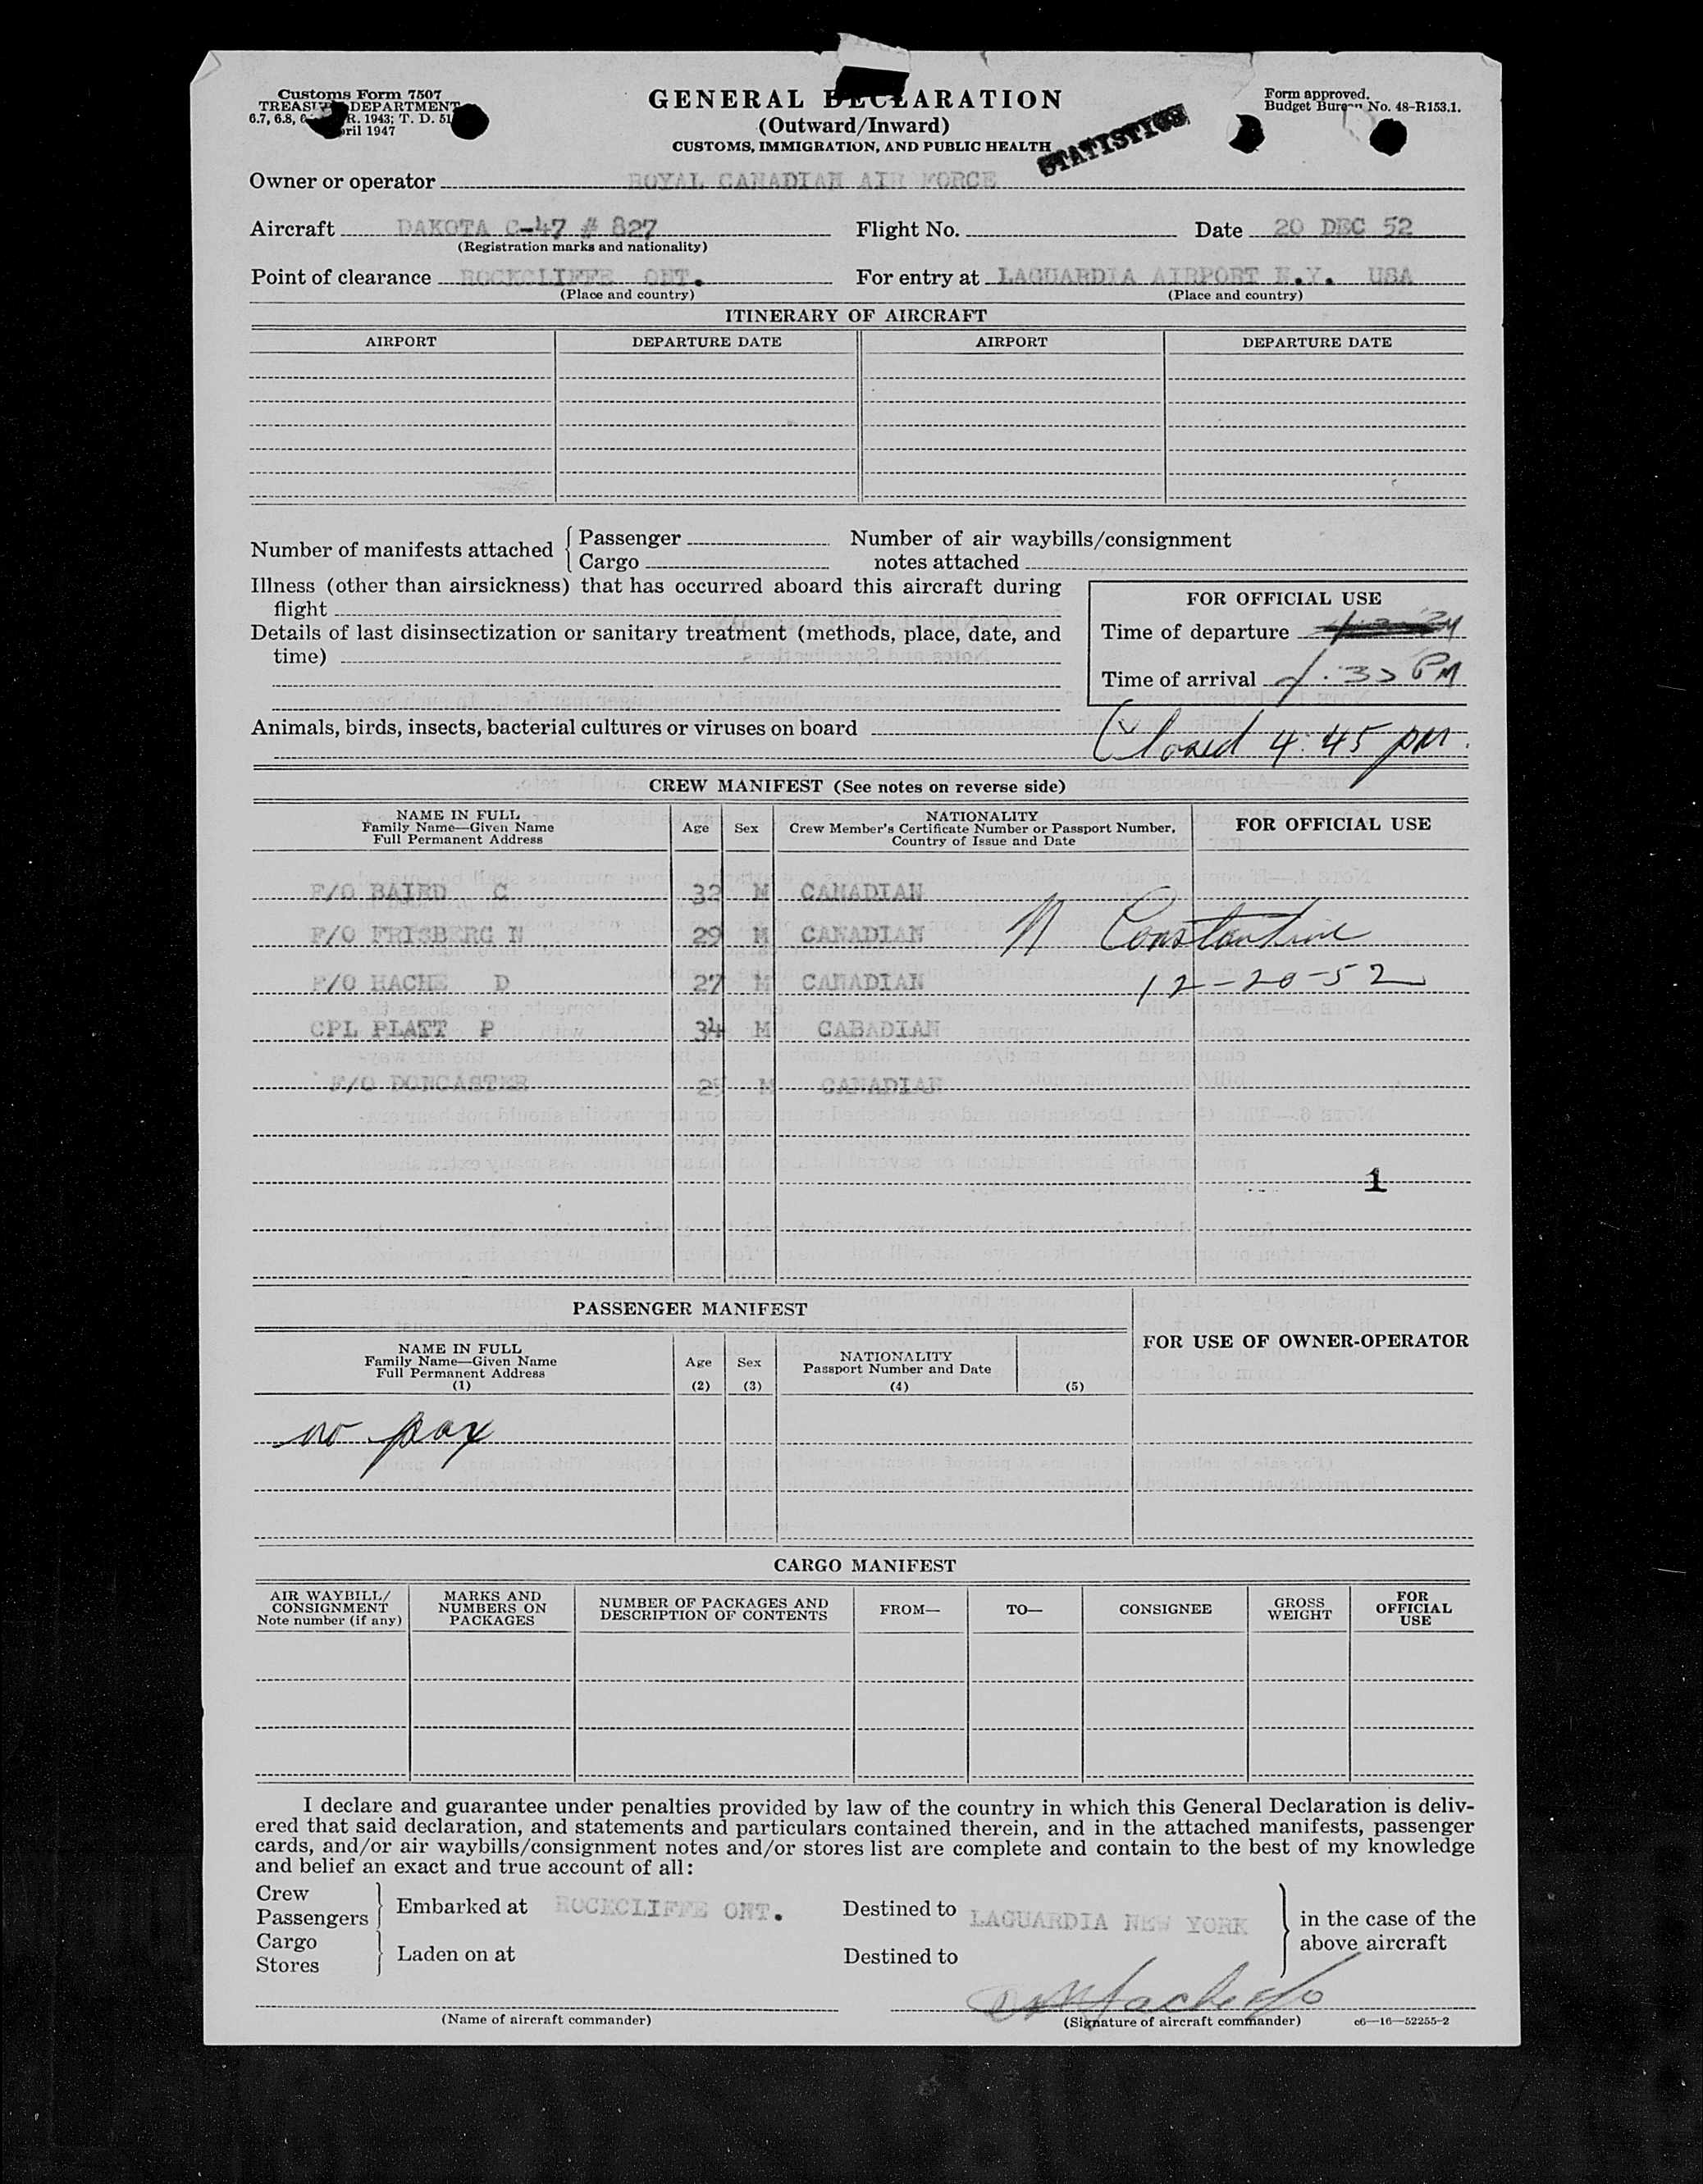 Customs Form 7507
TREASURY DEPARTMENT
6.7, 6.8, R. 1943; T. D. 51
April 1947
GENERAL DECLARATION
(Outward/Inward)
CUSTOMS, IMMIGRATION, AND PUBLIC HEALTH
STATISTICS
Form approved.
Budget Bureau No. 48-R153.1.
Owner or operator ROYAL CANADIAN AIR FORCE
Aircraft DAKOTA C-47 # 827 Flight No. Date 20 DEC 52
(Registration marks and nationality)
Point of clearance ROCKCLIFFE ONT. For entry at LAGUARDIA AIRPORT N.Y. USA
(Place and country) (Place and country)
ITINERARY OF AIRCRAFT
AIRPORT DEPARTURE DATE AIRPORT DEPARTURE DATE
Number of manifests attached { Passenger
Cargo
Number of air waybills/consignment
notes attached
Illness (other than airsickness) that has occurred aboard this aircraft during
flight
Details of last disinsectization or sanitary treatment (methods, place, date, and
time)
FOR OFFICIAL USE
Time of departure
Time of arrival PM
Animals, birds, insects, bacterial cultures or viruses on board
Closed 4:45 pm.
CREW MANIFEST (See notes on reverse side)
NAME IN FULL
Family Name—Given Name
Full Permanent Address
Age Sex
NATIONALITY
Crew Member's Certificate Number or Passport Number,
Country of Issue and Date
FOR OFFICIAL USE
F/O BAIRD C 32 M CANADIAN
F/O FRISBERG N 29 M CANADIAN N Constantine
F/O HACHE D 27 M CANADIAN 12-20-52
CPL PLATT P 34 M CABADIAN
F/O DONCASTER M CANADIAN
1
PASSENGER MANIFEST
FOR USE OF OWNER-OPERATOR
NAME IN FULL
Family Name—Given Name
Full Permanent Address
(1)
Age
(2)
Sex
(3)
NATIONALITY
Passport Number and Date
(4)
(5)
no pax
CARGO MANIFEST
AIR WAYBILL/
CONSIGNMENT
Note number (if any)
MARKS AND
NUMBERS ON
PACKAGES
NUMBER OF PACKAGES AND
DESCRIPTION OF CONTENTS
FROM—
TO—
CONSIGNEE
GROSS
WEIGHT
FOR
OFFICIAL
USE
I declare and guarantee under penalties provided by law of the country in which this General Declaration is deliv-
ered that said declaration, and statements and particulars contained therein, and in the attached manifests, passenger
cards, and/or air waybills/consignment notes and/or stores list are complete and contain to the best of my knowledge
and belief an exact and true account of all:
Crew
Passengers } Embarked at ROCKCLIFFE ONT. Destined to LAGUARDIA NEW YORK
Cargo
Stores } Laden on at Destined to
} in the case of the
above aircraft
Hache F/O
(Name of aircraft commander) (Signature of aircraft commander) c6—16—52255-2